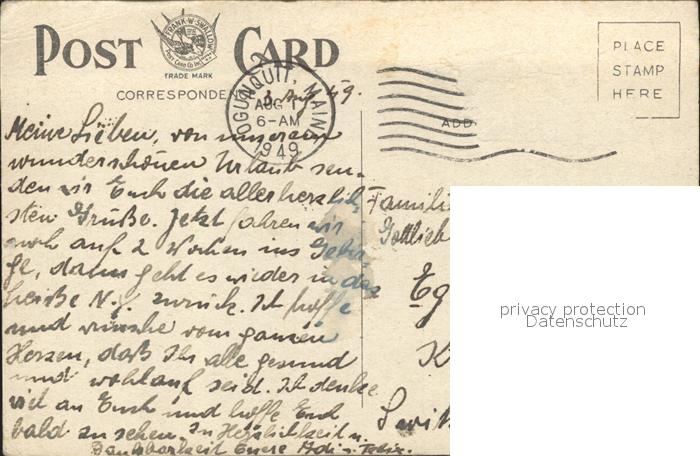 POST CARD
FRANK·W·SWALLOW
POST CARD CO INC.
TRADE MARK
CORRESPONDEN
OGUNQUIT, MAIN
AUG 1
6-AM
1949
PLACE
STAMP
HERE
ADD
1. Aug. 49.
Meine Lieben, von unserem
wunderschönen Urlaub sen-
den wir Euch die allerherzlich-
sten Grüße. Jetzt fahren wir
noch auf 2 Wochen ins Gebir-
ge, dann geht es wieder in das
heiße N.Y. zurück. Ich hoffe
und wünsche vom ganzen
Herzen, daß Ihr alle gesund
und wohlauf seid. Ich denke
viel an Euch und hoffe Euch
bald zu sehen. In Herzlichkeit u.
Dankbarkeit Euere Adi u. Felix.
Famili
Gottlieb
Eg
K
Swit
privacy protection
Datenschutz